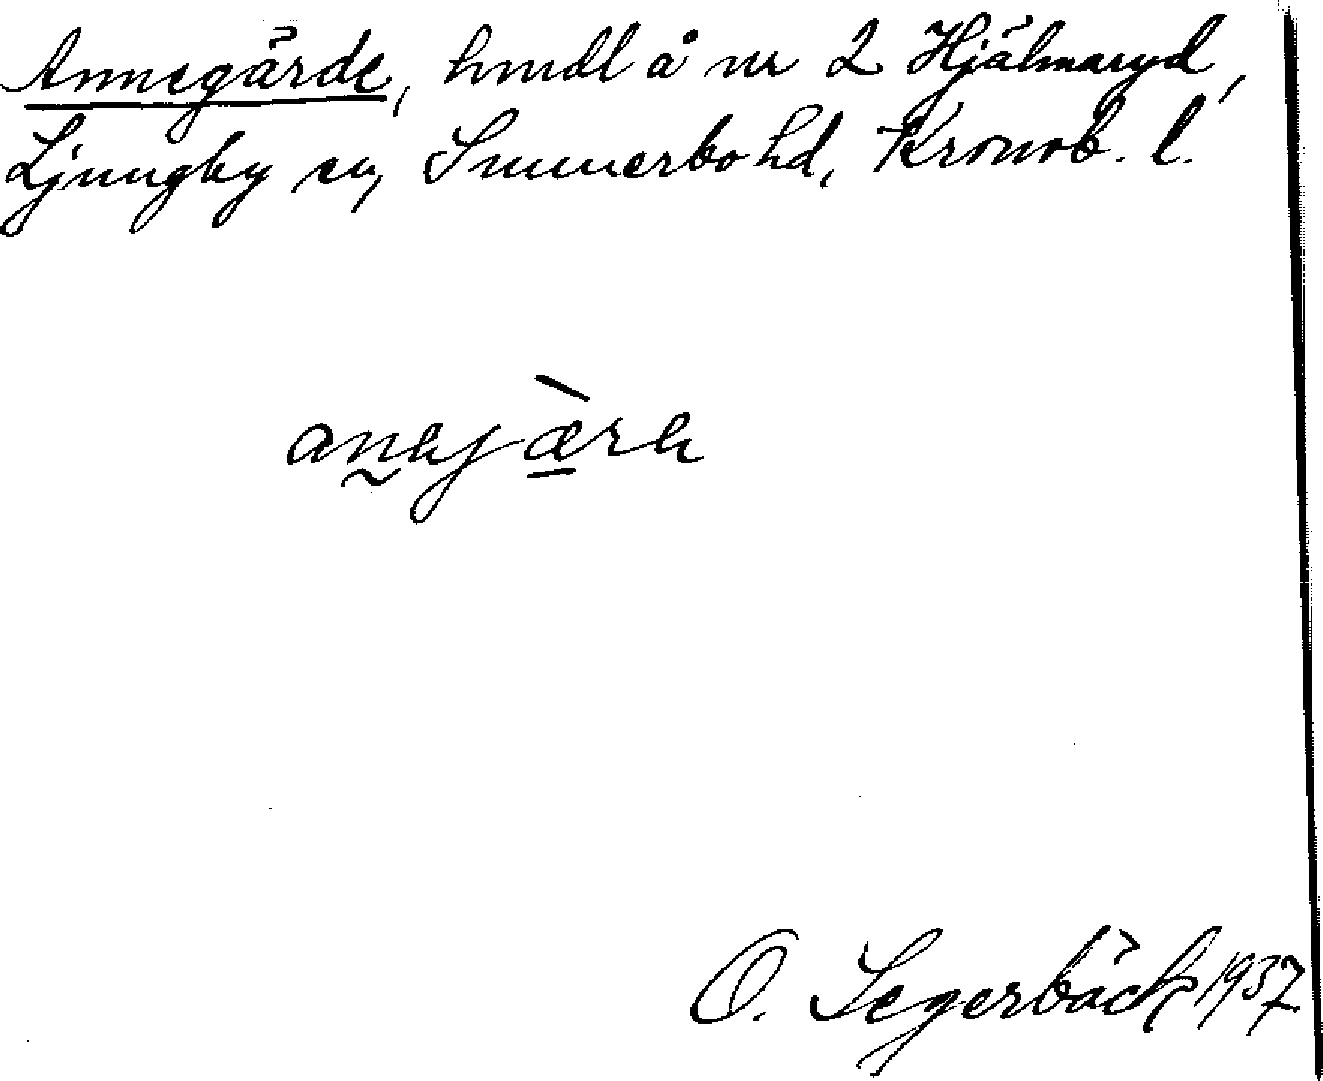 Annegärde, hmdl å nr 2 Hjälmaryd,
Ljungby sn, Sunnerbo hd, Kronob. l.
anejæ̀re
O. Segerbäck 1937